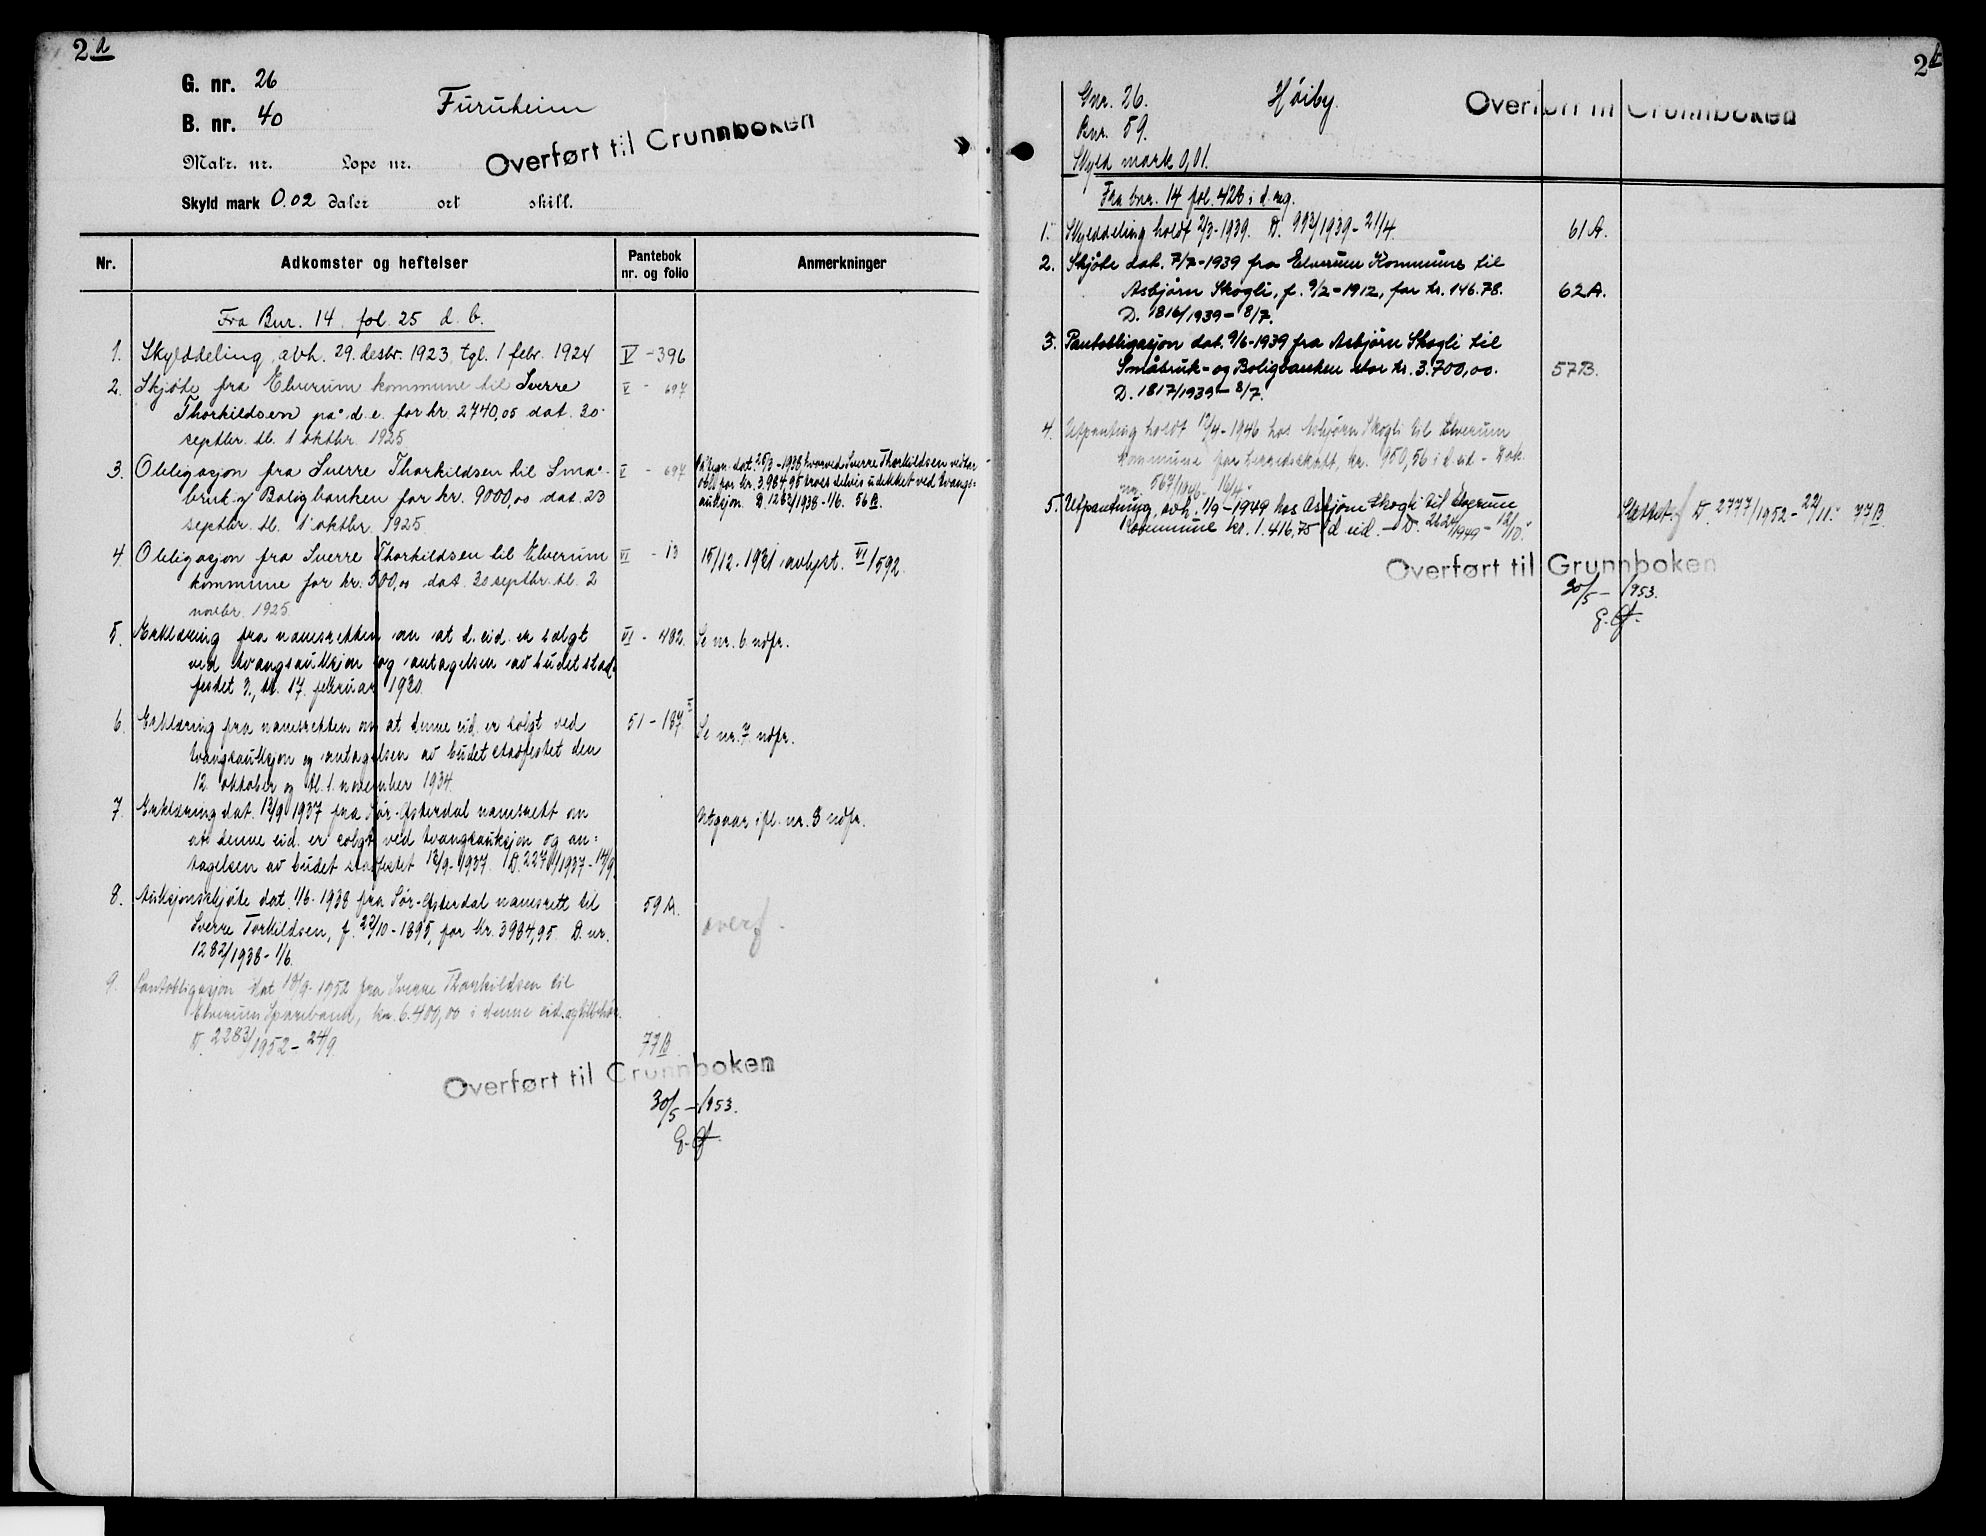 2a
G. nr. 26
B. nr. 40
Furuheim
Overført til Grunnboken
Matr. nr. Løpe nr.
Skyld mark 0.02 daler ort skill.
Nr. Adkomster og heftelser Pantebok nr. og folio Anmerkninger
Fra Bnr. 14 fol. 25 d. b.
1. Skylddeling avh. 29. desbr. 1923, tgl. 1 febr. 1924 V - 396
2. Skjøte fra Elverum kommune til Sverre V - 697
Thorkildsen på d. e. for kr. 2740,05 dat. 30.
septbr. tl. 1 oktbr. 1925.
3. Obligasjon fra Sverre Thorkildsen til Små- V - 697
bruk- og Boligbanken for kr. 9000,00 dat. 23
septbr. tl. 1 oktbr. 1925.
Påtegn. dat. 25/3-1938 hvorved Sverre Thorkildsen vedtar
obl. for kr. 3984,95 hvos delvis udekket ved tvangs-
auksjon. D. 1282/1938 - 1/6. 56 B.
4. Obligasjon fra Sverre Thorkildsen til Elverum VI - 13 15/12-1931 avlyst. VI/592.
kommune for kr. 300,00 dat. 30 septbr. tl. 2
novbr. 1925.
5. Erklæring fra namsretten om at d. eid. er solgt VI - 482. Se nr. 6 ndfr.
ved tvangsauksjon og antagelsen av budet stad-
festet 3., tl. 17. februar 1930.
6. Erklæring fra namsretten om at denne eid. er solgt ved 51 - 187. Se nr. 7 ndfr.
tvangsauksjon og antagelsen av budet stadfestet den
12. oktober og tl. 1. november 1934.
7. Erklæring dat. 13/9 1937 fra Sør-Østerdal namsrett om Utgaar ifl. nr. 8 ndfr.
at denne eid. er solgt ved tvangsauksjon og an-
tagelsen av budet stadfestet 13/9-1937. D. 2270/1937 - 14/9.
8. Auksjonsskjøte dat. 1/6-1938 fra Sør-Østerdal namsrett til 59 A. overf.
Sverre Torkildsen, f. 22/10-1895, for kr. 3984,95. D. nr.
1282/1938 - 1/6.
9. Pantobligasjon dat 18/9-1952 fra Sverre Thorkildsen til
Elverum Sparebank, kr. 6.400,00 i denne eid. og tilbehør.
D. 2283/1952 - 24/9. 77 B.
Overført til Grunnboken
30/5 - 1953.
2b
Gnr. 26. Høiby. Overført til Grunnboken
Bnr. 59.
Skyld mark 0,01.
Fra bnr. 14 fol. 426 i d. reg.
1. Skylddeling holdt 2/3-1939. D. 993/1939 - 21/4. 61 A.
2. Skjøte dat. 7/7-1939 fra Elverum Kommune til
Asbjørn Skogli, f. 9/2-1912, for kr. 146.78. 62 A.
D. 1816/1939 - 8/7.
3. Pantobligasjon dat. 9/6-1939 fra Asbjørn Skogli til
Småbruk- og Boligbanken stor kr. 3.700,00. 57 B.
D. 1817/1939 - 8/7.
4. Utpanting holdt 12/4-1946 hos Asbjørn Skogli til Elverum
kommune for herredsskatt, kr. 950,56 i d. eid. - Dok.
nr. 567/1946 - 16/4.
5. Utpanting, avh. 1/9-1949 hos Asbjørn Skogli til Elverum
kommune kr. 1.416,75 i d. eid. - D. 2424/1949 - 12/10. Slettet. D. 2777/1952 - 22/11. 77 B.
Overført til Grunnboken
30/5 - 1953.